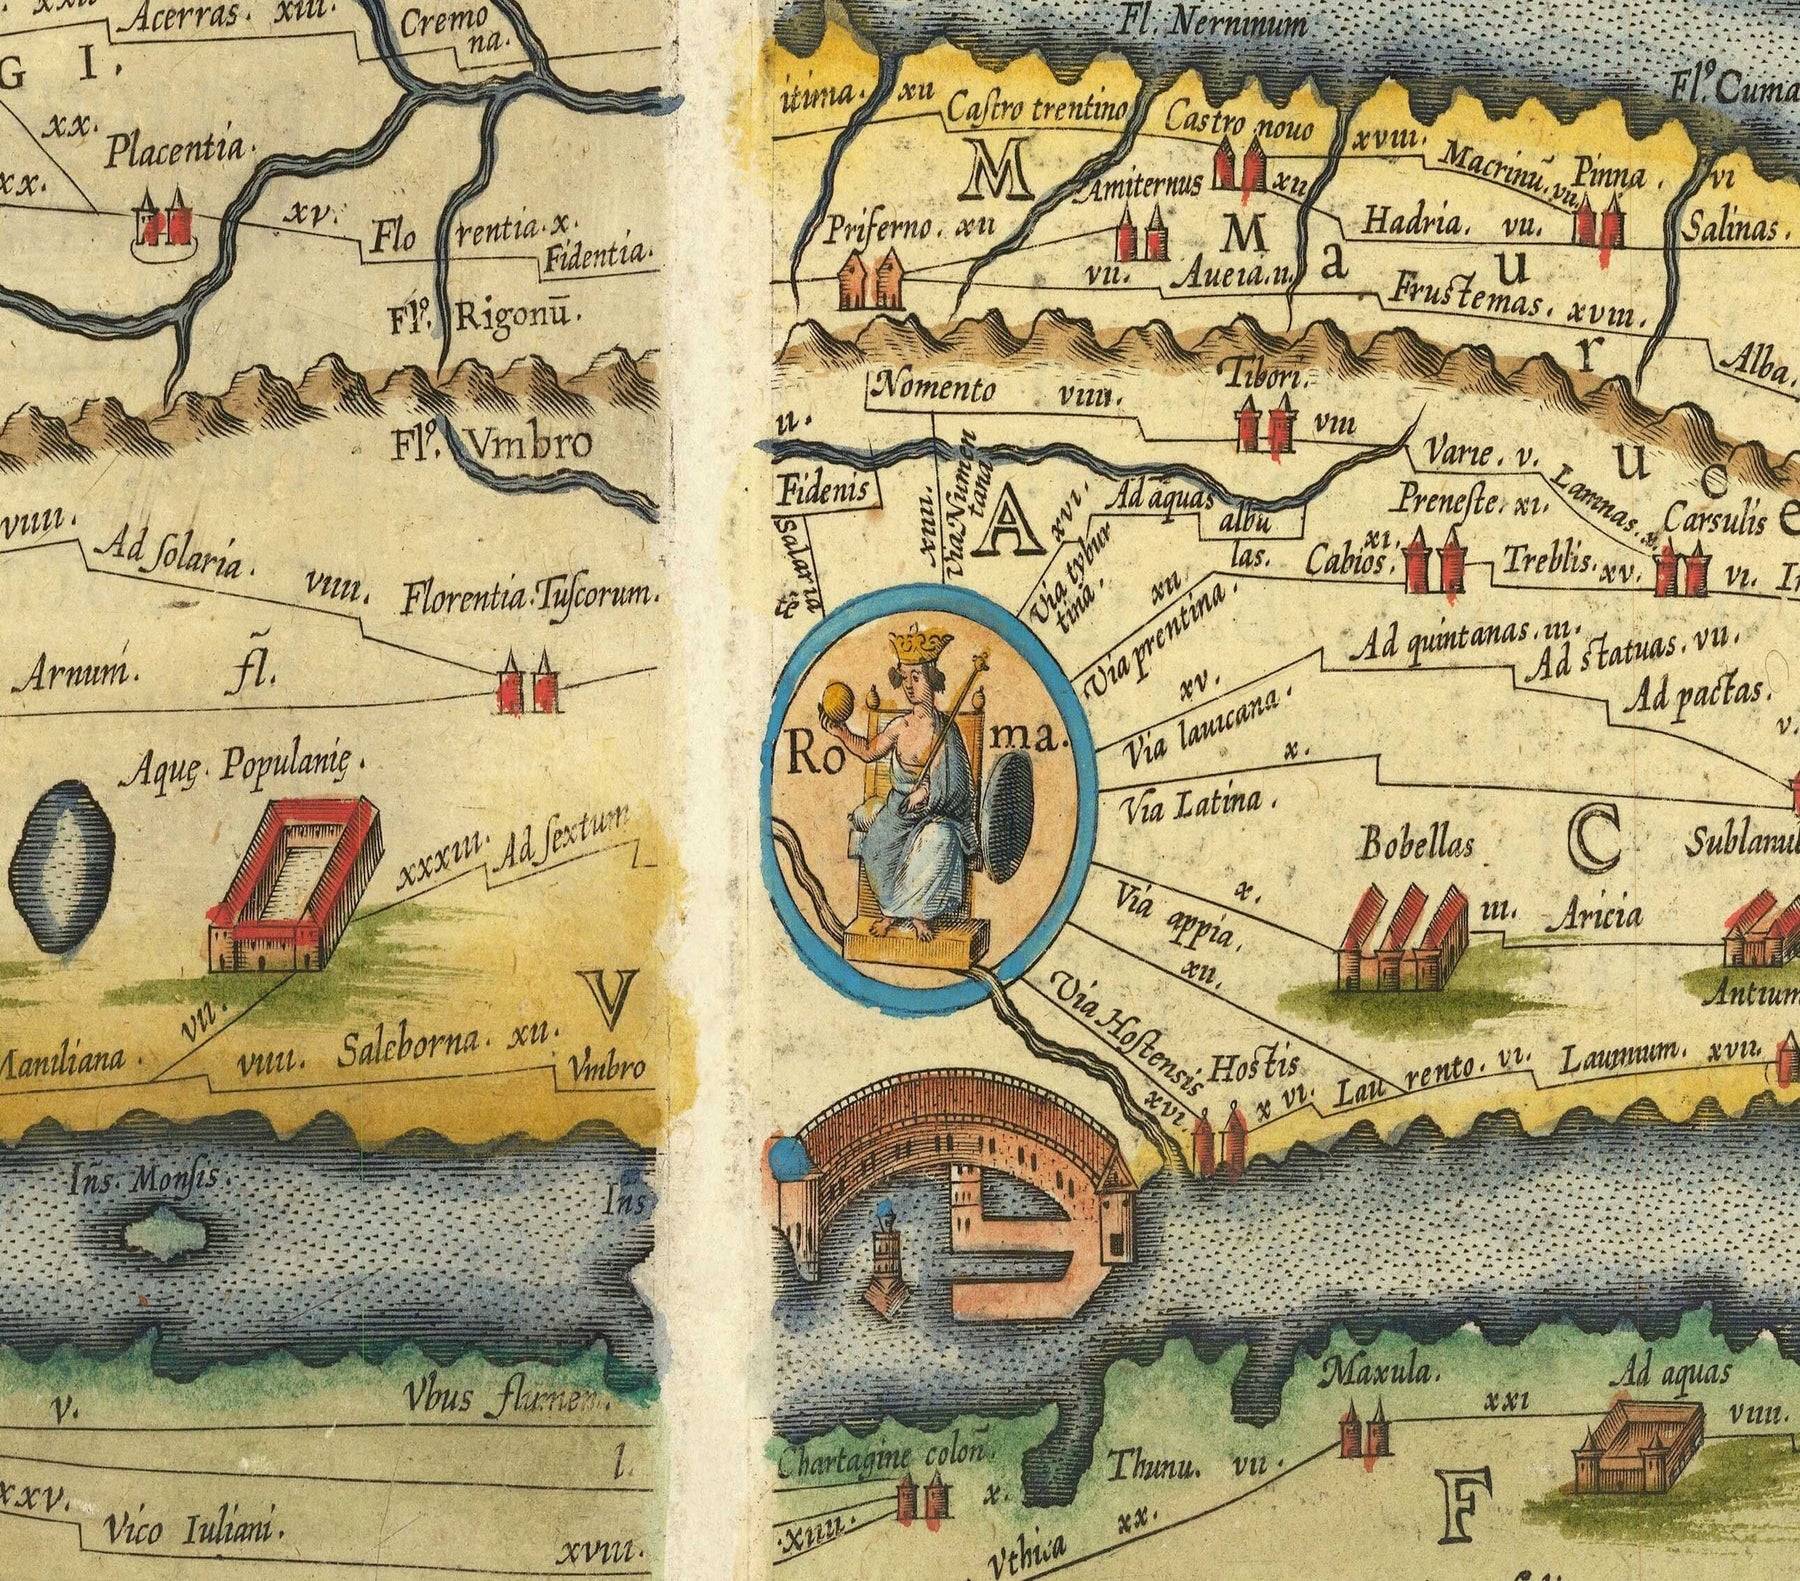 Acerras. xiii.
Cremo
na.
G I.
xx.
Placentia.
xx.
xv.
Flo rentia. x.
Fidentia.
Fl⁰. Rigonū.
Fl⁰. Vmbro
viiii.
Ad ſolaria.
viiii.
Florentia. Tuſcorum.
Arnum. fl̃.
Aquę. Populanię.
xxxiii. Ad ſextum
V
vii.
Maniliana.
viiii. Saleborna. xii.
Vmbro
Inś. Monſis.
Ins
v.
Vbus flumen.
l.
xxv.
Vico Iuliani.
xviii.
Fl. Nerninum
Fl⁰. Cuma
itima. xii
Caſtro trentino
Castro nouo
xviii.
Macrinū. vii.
Pinna.
vi
M
Amiternus
xii
Priferno. xii
M a u r u c e
Hadria. vii.
Salinas.
vii. Aueia. ii.
Frustemas. xviii.
Alba.
Nomento viiii.
Tibori.
viii
ii.
Varie. v.
Lamnas. x.
Fidenis
xiiii.
Via Numen
tana
A
xvi.
Ad aquas
albu
las.
Preneſte. xi.
Carsulis
xi.
Cabios.
Treblis. xv.
vi.
Salaria
Via tybur
tina.
xii
Via prentina.
Ad quintanas. iii.
Ad statuas. vii.
Ad pactas.
v.
xv.
Via lauicana.
Ro ma.
x.
Via Latina.
Bobellas
C
Sublanu
x.
Via appia.
iii. Aricia
xii.
Antium
Via Hoſtensis
xvi.
Hostis
x vi. Lau rento. vi. Lauinium. xvii.
Maxula.
Ad aquas
xxi
viiii.
Chartagine coloñ.
Thunu. vii.
x.
F
xiiii.
Vthica xx.